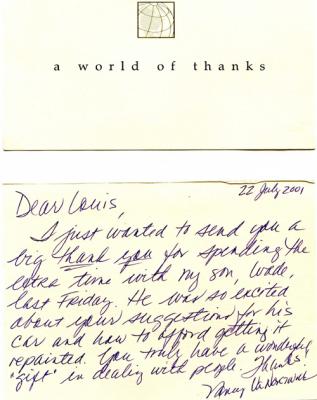 a world of thanks
22 July 2001
Dear Louis,
I just wanted to send you a
big thank you for spending the
extra time with my son, Wade,
last Friday. He was so excited
about your suggestions for his
car and how to afford getting it
repainted. You truly have a wonderful
"gift" in dealing with people. Thanks!
Nancy